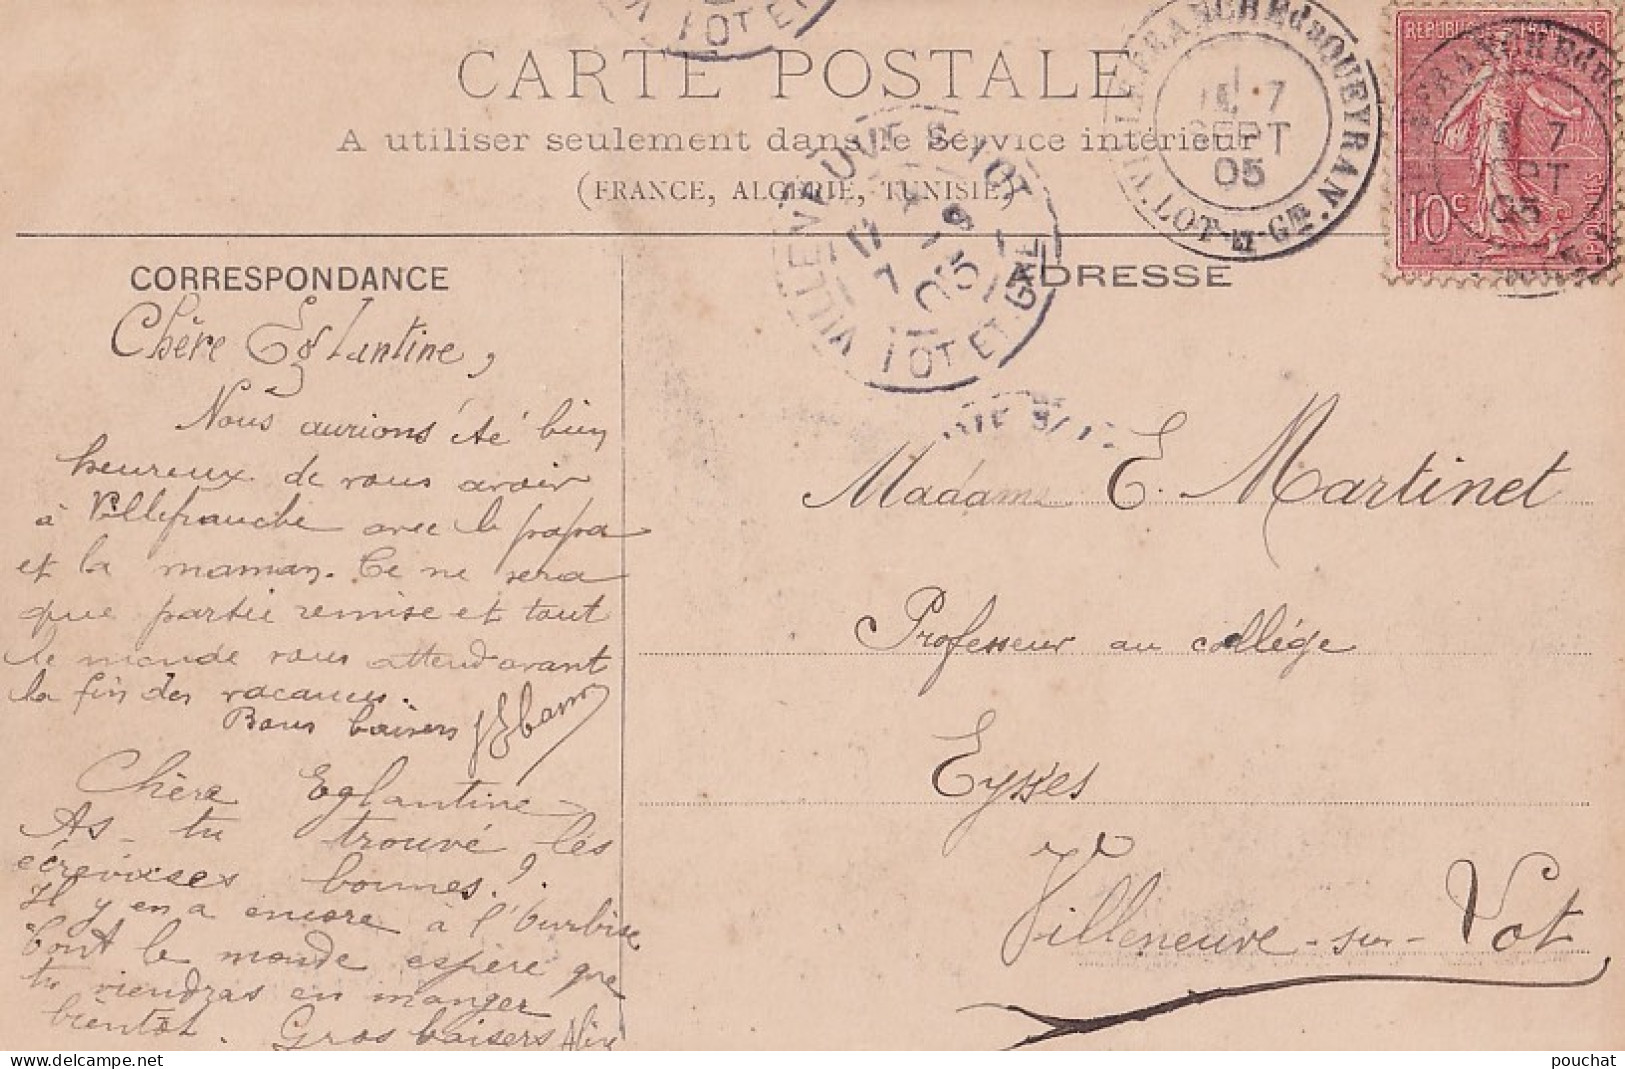 CARTE POSTALE
A utiliser seulement dans le Service intérieur
(FRANCE, ALGÉRIE, TUNISIE)
VILLEFRANCHE du QUEYRAN. LOT-ET-GNE.
7
SEPT
05
REPUBLIQUE FRANÇAISE
10c
POSTES
VILLENEUVE S/ LOT
05
LOT ET GNE
CORRESPONDANCE
ADRESSE
Chère Eglantine,
Nous aurions été bien
heureux de vous avoir
à Villefranche avec le papa
et la maman. Ce ne sera
que partie remise et tout
le monde vous attend avant
la fin des vacances.
Bons baisers
Chère Eglantine
As-tu trouvé les
écrevisses bonnes?.
Il y en a encore à l'
tout le monde espère que
tu viendras en manger
bientôt. Gros baisers Aline
Madame E. Martinet
Professeur au collége
Eysses
Villeneuve-sur-Lot
pouchat